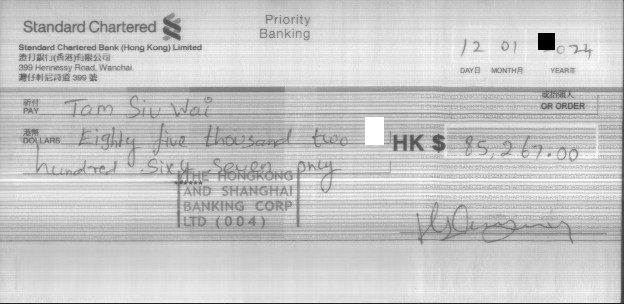 Standard Chartered
Priority
Banking
Standard Chartered Bank (Hong Kong) Limited
渣打銀行(香港)有限公司
399 Hennessy Road, Wanchai
灣仔軒尼詩道 399 號
12 01 024
DAY日 MONTH月 YEAR年
祈付
PAY
Tam Siu Wai
或指個人
OR ORDER
港幣
DOLLARS
Eighty five thousand two
hundred Sixy Seven only
HK $
85,267.00
THE HONGKONG
AND SHANGHAI
BANKING CORP
LTD (004)